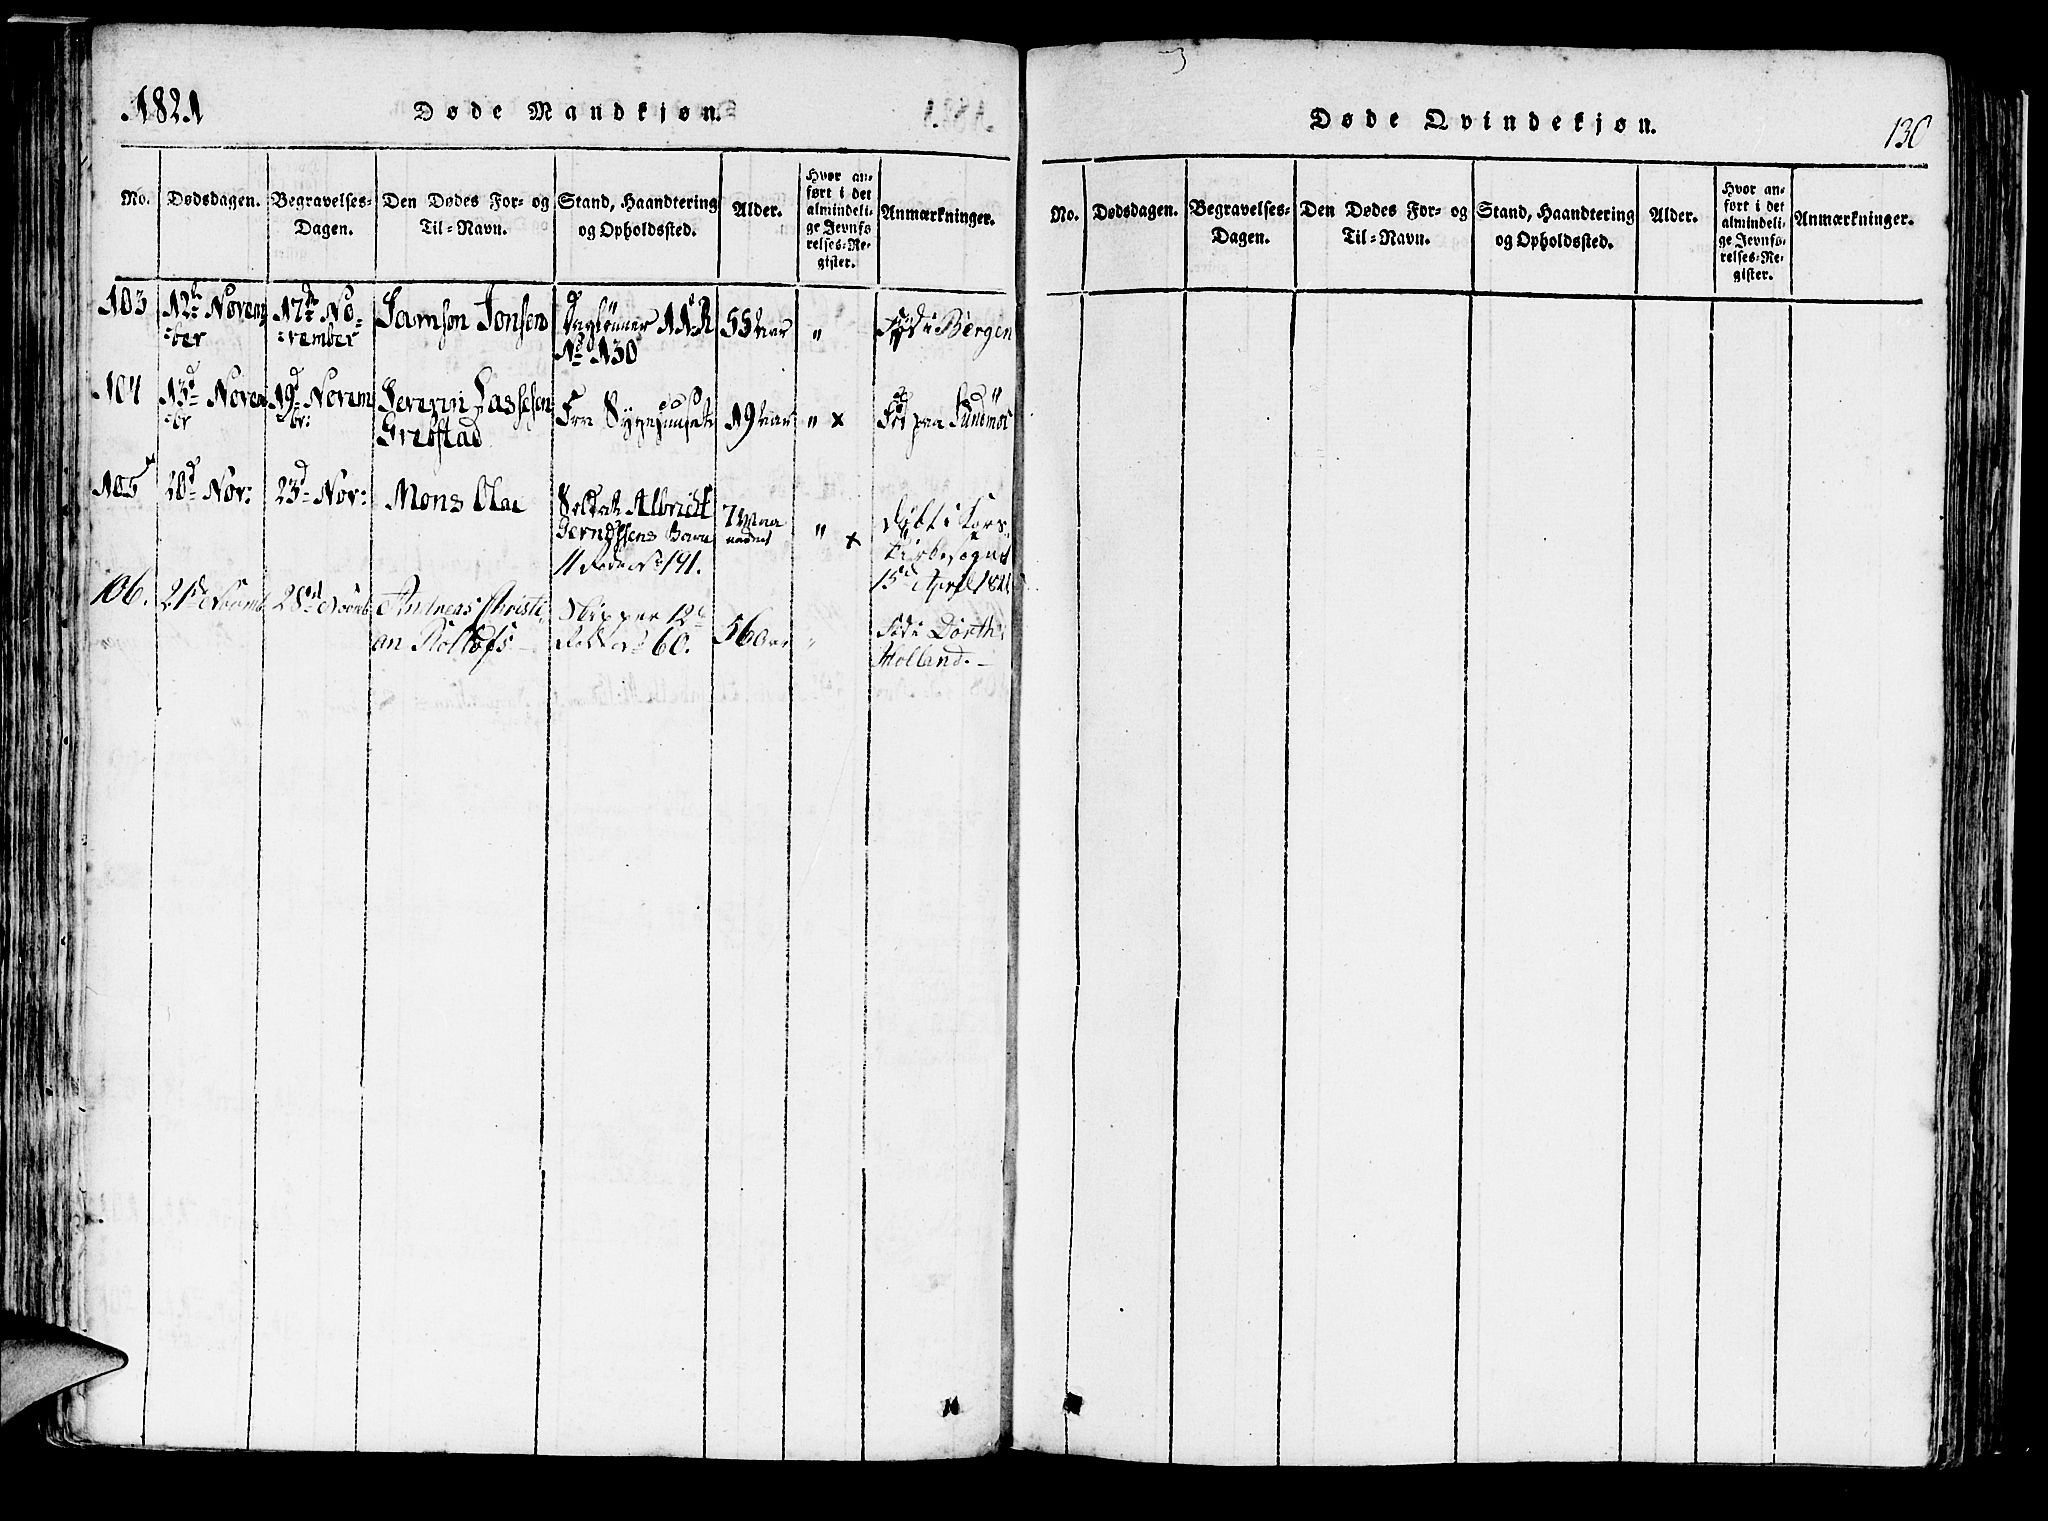 1821
Døde Mandkjøn.
No.
Dødsdagen.
Begravelses-
Dagen.
Den Dødes For- og
Til-Navn.
Stand, Haandtering
og Opholdssted.
Alder.
Hvor an-
ført i det
almindeli-
ge Jevnfø-
relses-Re-
gister.
Anmærkninger.
103
12te Novem
ber
17de No-
vember
Samson Jonsen
Dagлønner 11 R
No 130
55 Aar
"
Fød i Bergen
104
13d Novem
br
19d Novem
br:
Severin Lassesen
Grebstad
Fra Sygehuuset
19 Aar
" x
Fød paa Sundmør
105
20d Nov:
23d Nov:
Mons Olai
Soldat Albricht
Berndtsens Barn
11 Rode No 191.
7 Maa
neder
" x
Døbt i Kors-
kirkesognet
15d April 1821
106.
21de Novmb
28de Novmb
Andreas Christi
an Roltofs
Skipper 12te
Rode No 60.
56 Aar
"
Fød i Dorth
Holland.
Døde Qvindekjøn.
130
No.
Dødsdagen.
Begravelses-
Dagen.
Den Dødes For- og
Til-Navn.
Stand, Haandtering
og Opholdssted.
Alder.
Hvor an-
ført i det
almindeli-
ge Jevnfø-
relses-Re-
gister.
Anmærkninger.